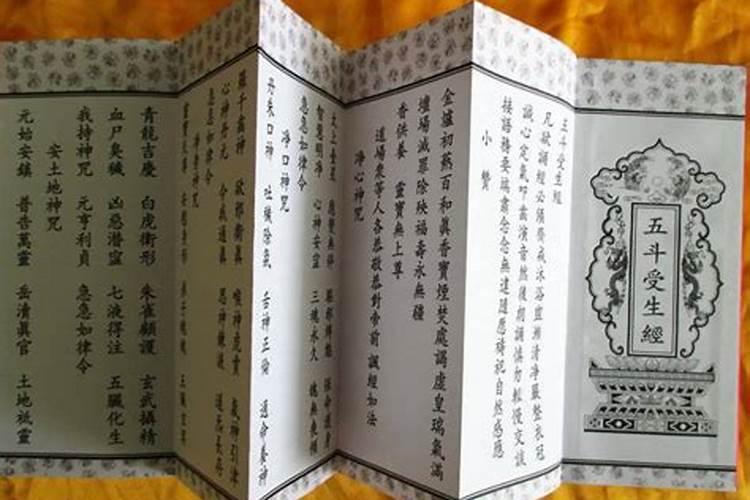 五斗受生經
五斗受生經
凡欲誦經必須齋戒沐浴盥漱清淨嚴整衣冠
誠心定氣叩齒演音然後朗誦慎勿輕慢交談
接語務要端肅念念無違隨應禱祀自然感應
小贊
金爐初爇百和眞香寶煙焚處謁虛皇瑞氣滿
壇場滅罪除殃福壽永無疆
香供養 靈寶無上尊
道場眾等人各恭敬恭對帝前 誦經如法
淨心神咒
太上台星 應變無停 驅邪縛魅 保命護身
智慧明淨 心神安寧 三魂永久 魄無喪傾
急急如律令
淨口神咒
丹朱口神 吐穢除氛 舌神正倫 通命養神
羅千齒神 卻邪衛眞 喉神虎賁 氣神引津
心神丹元 令我通眞 思神鍊液 道炁長存
急急如律令
淨身神咒
靈寶天尊 安慰身形 弟子魂魄 五臟玄冥
青龍吉慶 白虎衛形 朱雀顧護 玄武攝精
血尸臭穢 凶惡潛寍 七液得注 五臟化生
我持神咒 元亨利貞 急急如律令
安土地神咒
元始安鎮 普告萬靈 岳瀆眞官 土地祗靈